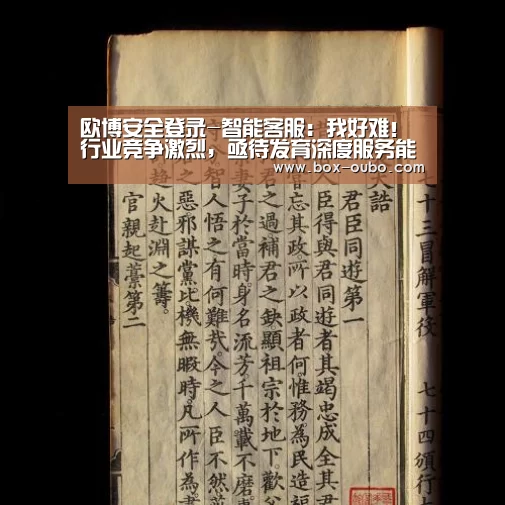 欧博安全登录-智能客服：我好难！
行业竞争激烈，亟待发育深度服务能
www.box-oubo.com
七十三冒解軍役　七十四頒行
大誥
君臣同遊第一
人臣得與君同遊者其竭忠成全其君
嘗忘其政。所以政者何。惟務為民造福
君之過補君之缺。顯祖宗於地下。歡父
妻子於當時。身名流芳。千萬載不磨。
人智人悟之有何難哉。今之人臣不然。
之惡邪謀黨比。機無暇時。凡所作為。
趨火赴淵之籌。
官親起藁第二